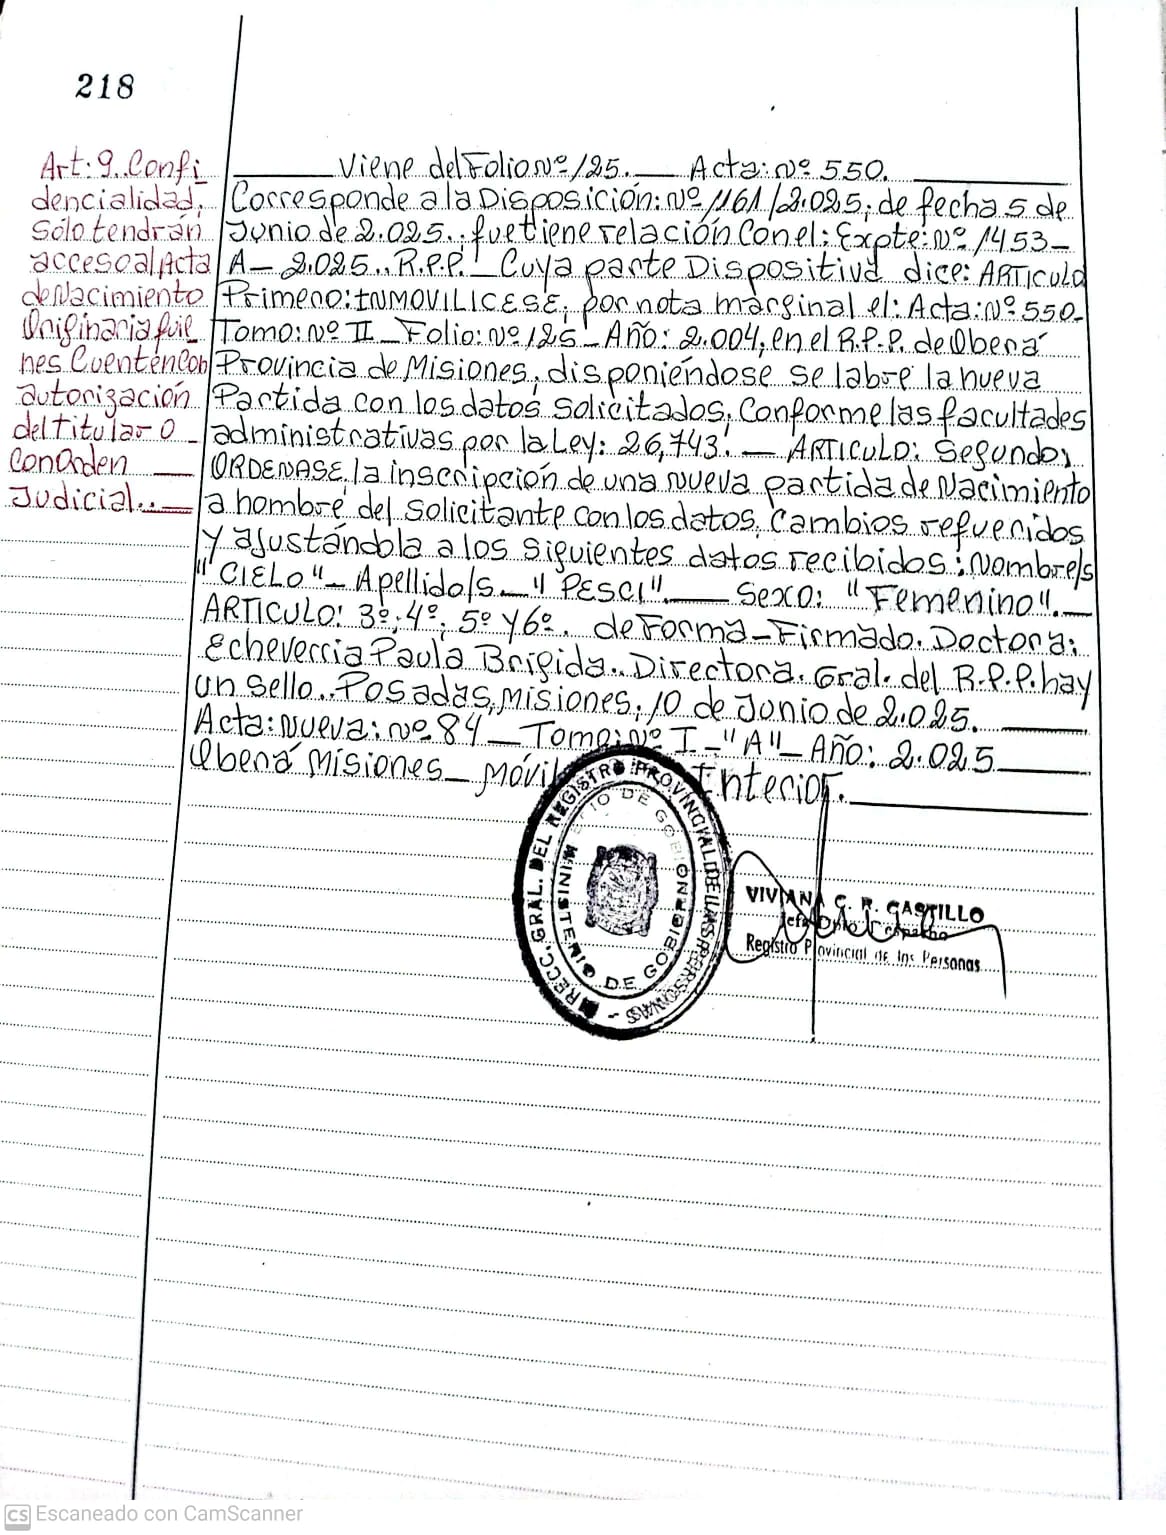 218
Art: 9. Confi_
dencialidad;
Sólo tendrán
acceso al Acta
de Nacimiento
Originaria quie_
nes Cuenten Con
autorización
del titular o _
Con Orden __
Judicial..__
______ Viene del Folio Nº 125. ___ Acta: Nº 550. ______
Corresponde a la Disposición: Nº 1161/2.025; de fecha 5 de
Junio de 2.025.; que tiene relación Con el: Expte: Nº 1453_
A_ 2.025.. R.P.P. _ Cuya parte Dispositiva dice: ARTICULO
Primero: INMOVILICESE; por nota marginal el: Acta: Nº 550_
Tomo: Nº II_ Folio: Nº 125_ Año: 2.004, en el R.P.P. de Oberá
Provincia de Misiones, disponiéndose se labre la nueva
Partida con los datos solicitados, Conforme las facultades
administrativas por la Ley: 26,743. __ ARTICULO: Segundo;
ORDENASE, la inscripción de una nueva partida de Nacimiento
a hombre del solicitante con los datos, Cambios requeridos
Y ajustándola a los siguientes datos recibidos: Nombre/s
"CIELO"_ Apellido/s_ "PESCI". ___ Sexo: "Femenino".__
ARTICULO: 3º; 4º; 5º Y 6º. de Forma_ Firmado. Doctora:
Echeverria Paula Brigida.. Directora. Gral. del R.P.P. hay
un sello.. Posadas, Misiones; 10 de Junio de 2.025. ____
Acta: Nueva: Nº 84_ Tomo: Nº I_ "A"_ Año: 2.025____
Oberá Misiones_ Móvil Interior. ______
DIRECC. GRAL. DEL REGISTRO PROVINCIAL DE LAS PERSONAS -
MINISTERIO DE GOBIERNO
VIVIANA C. R. CASTILLO
Registro Provincial de las Personas
CS Escaneado con CamScanner